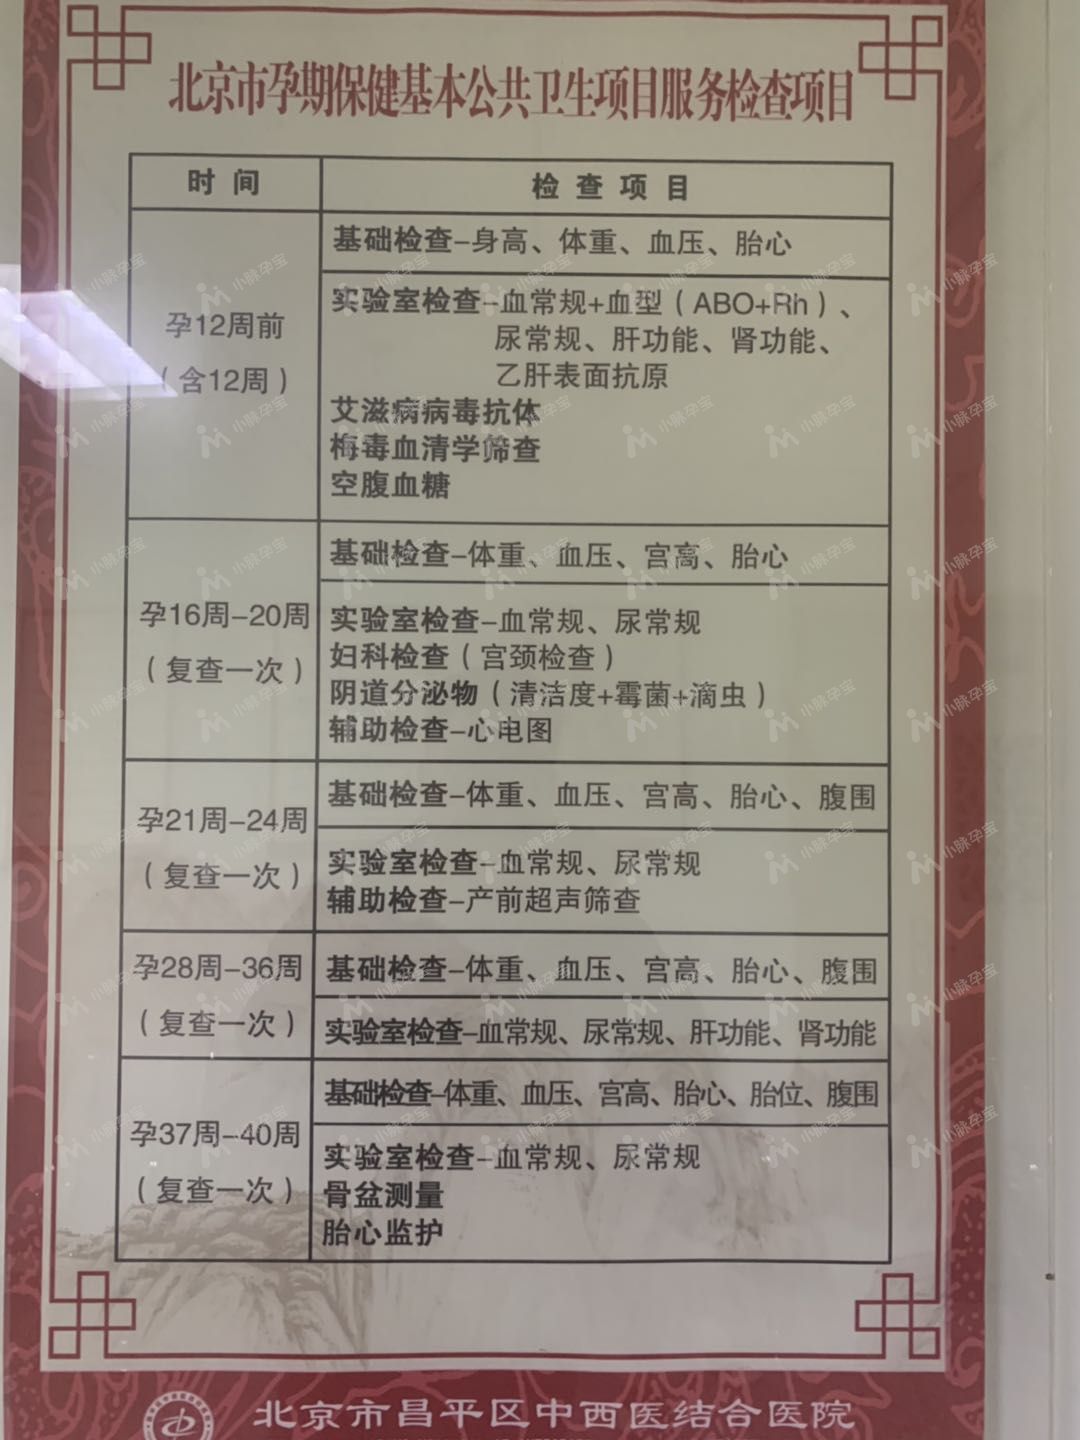 北京市孕期保健基本公共卫生项目服务检查项目
时 间
检 查 项 目
孕12周前
（含12周）
基础检查–身高、体重、血压、胎心
实验室检查–血常规+血型（ABO+Rh）、
尿常规、肝功能、肾功能、
乙肝表面抗原
艾滋病病毒抗体
梅毒血清学筛查
空腹血糖
孕16周–20周
（复查一次）
基础检查–体重、血压、宫高、胎心
实验室检查–血常规、尿常规
妇科检查（宫颈检查）
阴道分泌物（清洁度+霉菌+滴虫）
辅助检查–心电图
孕21周–24周
（复查一次）
基础检查–体重、血压、宫高、胎心、腹围
实验室检查–血常规、尿常规
辅助检查–产前超声筛查
孕28周–36周
（复查一次）
基础检查–体重、血压、宫高、胎心、腹围
实验室检查–血常规、尿常规、肝功能、肾功能
孕37周–40周
（复查一次）
基础检查–体重、血压、宫高、胎心、胎位、腹围
实验室检查–血常规、尿常规
骨盆测量
胎心监护
北京市昌平区中西医结合医院
小脉孕宝